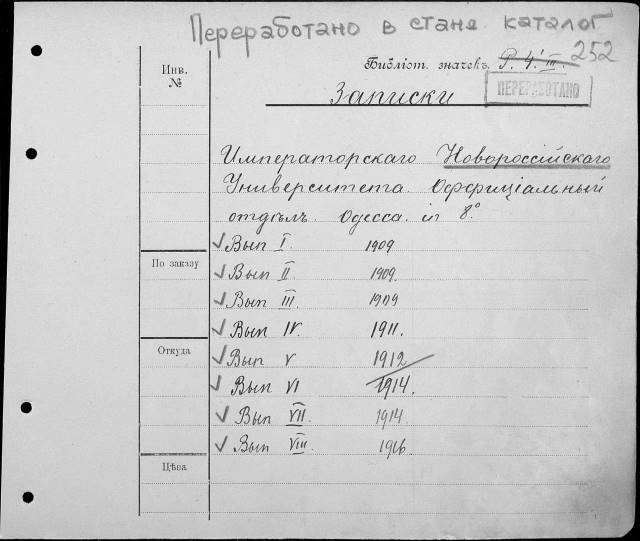 Переработано в стана каталог
252
Инв. №
Библіот. значекъ P. 4. III.
ПЕРЕРАБОТАНО
Записки
Императорскаго Новороссійскаго
Университета. Оффиціальный
отдѣлъ. Одесса. in 8º
Вып I. 1909
По заказу
Вып II 1909.
Вып III. 1909
Вып IV. 1911.
Откуда
Вып V 1912
Вып VI 1914.
Вып VII. 1914
Вып VIII. 1916
Цѣна